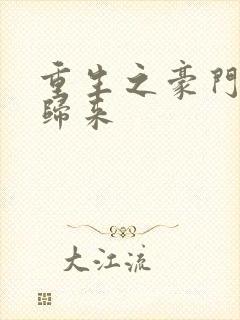 重生之豪門
歸来
大江流